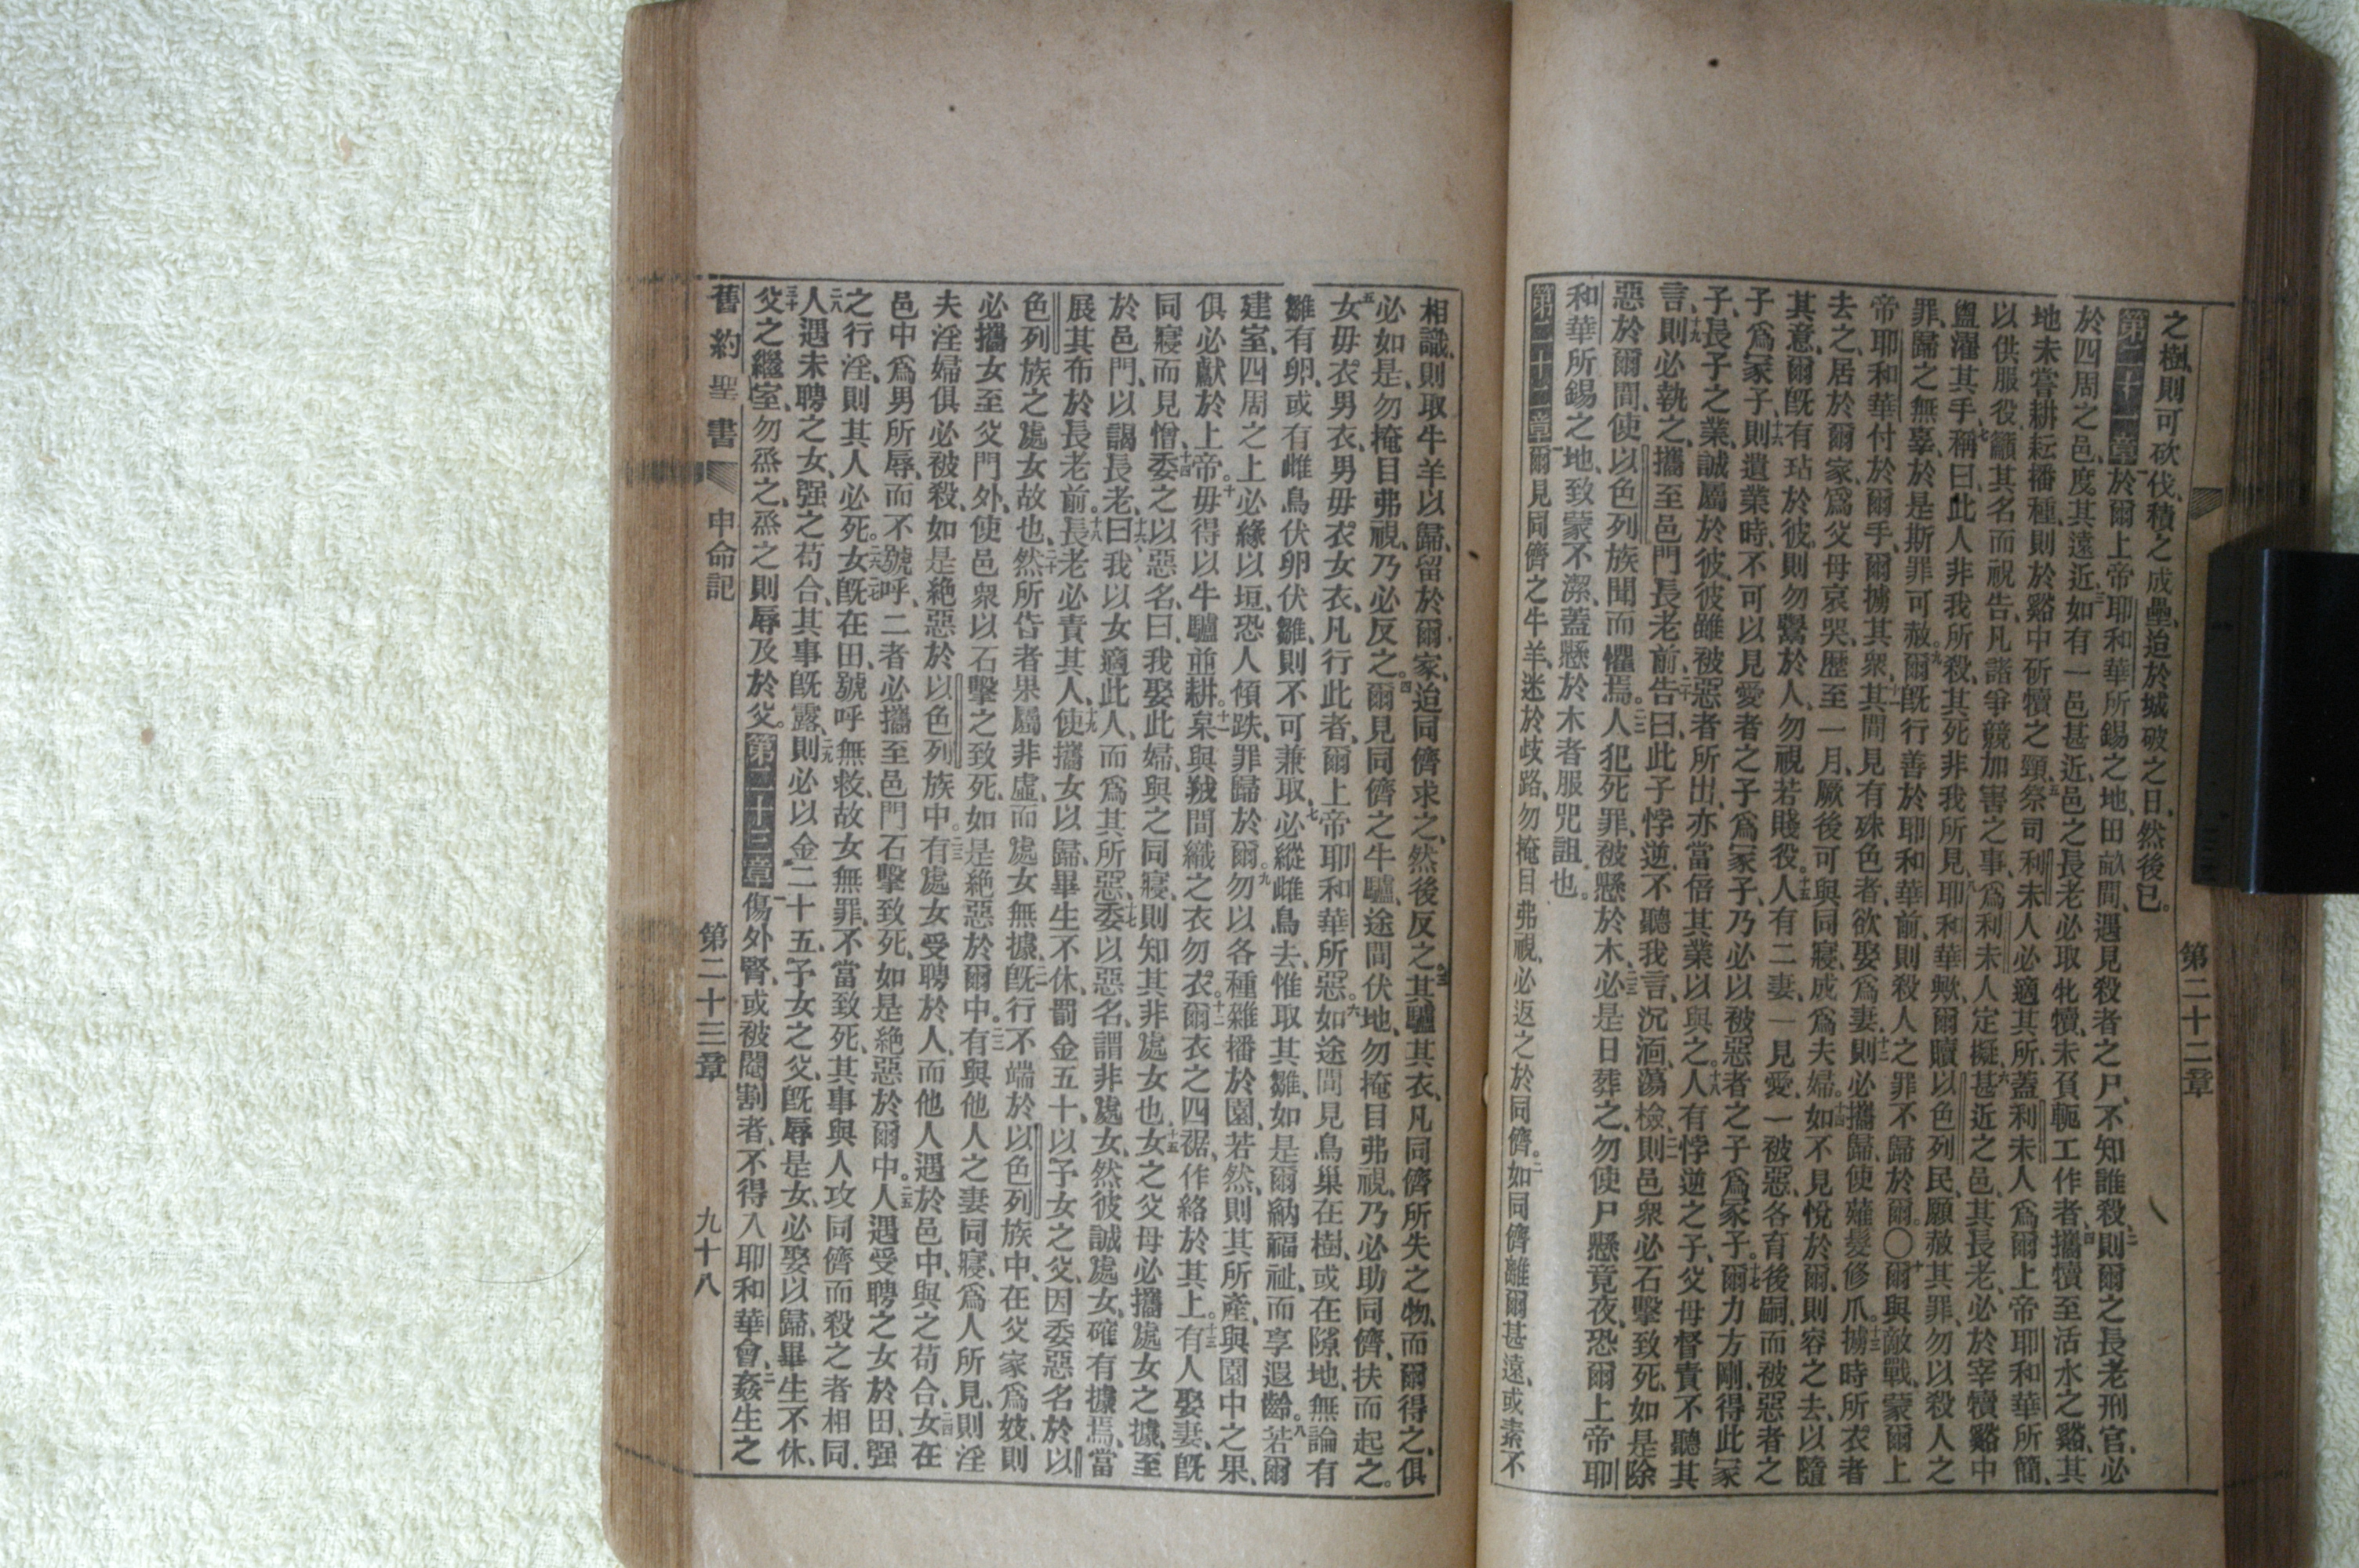 之樹、則可砍伐、積之成壘、迨於城破之日、然後已。
第二十一章 一於爾上帝耶和華所錫之地、田畝間、遇見殺者之尸、不知誰殺、二則爾之長老刑官、必
於四周之邑、度其遠近、三如有一邑甚近、邑之長老必取牝犢、未負軛工作者、四攜犢至活水之谿、其
地未嘗耕耘播種、則於谿中斫犢之頸、五祭司利未人必適其所、蓋利未人爲爾上帝耶和華所簡、
以供服役、籲其名而祝告、凡諸爭競加害之事、爲利未人定擬、六甚近之邑、其長老、必於宰犢谿中
盥濯其手、七稱曰、此人非我所殺、其死非我所見、八耶和華歟、爾贖以色列民、願赦其罪、勿以殺人之
罪、歸之無辜、於是斯罪可赦。九爾既行善於耶和華前、則殺人之罪不歸於爾。〇十爾與敵戰、蒙爾上
帝耶和華付於爾手、爾擄其衆、十一其間見有殊色者、欲娶爲妻、十二則必攜歸、使薙髮修爪、十三擄時所衣者
去之、居於爾家、爲父母哀哭、歷至一月、厥後可與同寢、成爲夫婦、十四如不見悅於爾、則容之去、以隨
其意、爾既有玷於彼、則勿鬻於人、勿視若賤役。十五人有二妻、一見愛、一被惡、各育後嗣、而被惡者之
子爲冢子、十六則遺業時、不可以見愛者之子爲冢子、乃必以被惡者之子爲冢子。十七爾力方剛、得此冢
子、長子之業、誠屬於彼、彼雖被惡者所出、亦當倍其業以與之。十八人有悖逆之子、父母督責不聽其
言、十九則必執之、攜至邑門長老前、二十告曰、此子悖逆、不聽我言、沉湎蕩檢、二一則邑衆必石擊致死、如是除
惡於爾間、使以色列族聞而懼焉。二二人犯死罪、被懸於木、二三必是日葬之、勿使尸懸竟夜、恐爾上帝耶
和華所錫之地、致蒙不潔、蓋懸於木者服咒詛也。
第二十二章 一爾見同儕之牛羊、迷於歧路、勿掩目弗視、必返之於同儕。二如同儕離爾甚遠、或素不
第二十二章
相識、則取牛羊以歸、留於爾家、迨同儕求之、然後反之、三其驢其衣、凡同儕所失之物、而爾得之、俱
必如是、勿掩目弗視、乃必反之。四爾見同儕之牛驢、途間伏地、勿掩目弗視、乃必助同儕、扶而起之。
五女毋衣男衣、男毋衣女衣、凡行此者、爾上帝耶和華所惡。六如途間見鳥巢在樹、或在隙地、無論有
雛有卵、或有雌鳥伏卵伏雛、則不可兼取、七必縱雌鳥去、惟取其雛、如是爾納福祉、而享遐齡。八若爾
建室、四周之上、必緣以垣、恐人傾跌、罪歸於爾。九勿以各種雜播於園、若然、則其所產、與園中之果、
俱必獻於上帝。十毋得以牛驢並耕。十一枲與羢間織之衣勿衣。十二爾衣之四裾、作絡於其上。十三有人娶妻、既
同寢而見憎、十四委之以惡名、曰、我娶此婦、與之同寢、則知其非處女也、十五女之父母必攜處女之據、至
於邑門、以謁長老、十六曰、我以女適此人、而爲其所惡、十七委以惡名、謂非處女、然彼誠處女、確有據焉、當
展其布於長老前。十八長老必責其人、十九使攜女以歸、畢生不休、罰金五十、以予女之父、因委惡名於以
色列族之處女故也、二十然所告者果屬非虛、而處女無據、二一既行不端於以色列族中、在父家爲妓、則
必攜女至父門外、使邑衆以石擊之致死、如是絕惡於爾中。二二有與他人之妻同寢、爲人所見、則淫
夫淫婦俱必被殺、如是絕惡於以色列族中。二三有處女受聘於人、而他人遇於邑中、與之苟合、二四女在
邑中爲男所辱、而不號呼、二者必攜至邑門、石擊致死、如是絕惡於爾中。二五人遇受聘之女於田、强
之行淫、則其人必死。二六二七女既在田、號呼無救、故女無罪、不當致死、其事與人攻同儕而殺之者相同、
二八人遇未聘之女、强之苟合、其事既露、二九則必以金二十五、予女之父、既辱是女、必娶以歸、畢生不休、
三十父之繼室、勿烝之、烝之則辱及於父。第二十三章 一傷外腎、或被閹割者、不得入耶和華會、二姦生之
舊約聖書 申命記 第二十三章 九十八